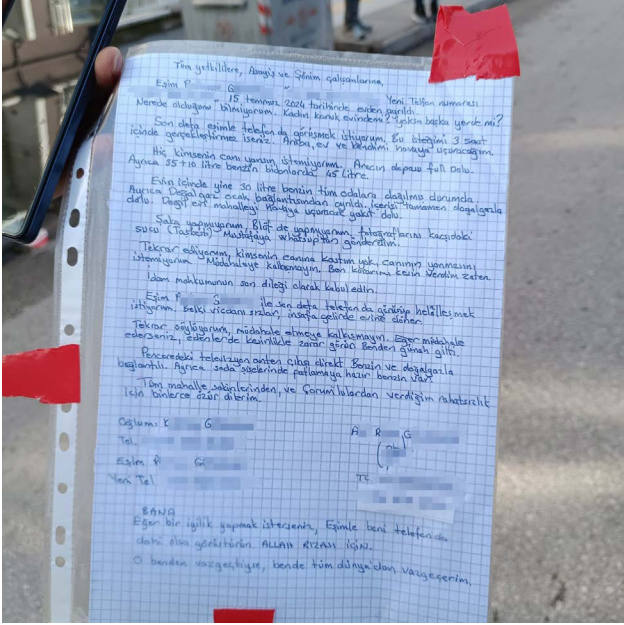 Tüm yetkililere, Asayiş ve Şönim çalışanlarına,
Eşim P G Yeni Telfon numarası
15 temmuz 2024 tarihinde evden ayrıldı.
Nerede olduğunu bilmiyorum. Kadın konuk evindemi? Yoksa başka yerde mi?
Son defa eşimle telefon da görüşmek istiyorum. Bu isteğimi 3 saat
içinde gerçekleştirmez iseniz. Araba, ev ve kendimi havaya uçuracağım.
Hiç kimsenin canı yansın istemiyorum. Aracın deposu full dolu.
Ayrıca 35+10 litre benzin bidonlarda 45 Litre.
Evin içinde yine 30 litre benzin tüm odalara dağılmış durumda
Ayrıca Doğalgaz ocak bağlantısından ayrıldı. içerisi tamamen doğalgazla
dolu. Değil evi mahalleyi Havaya uçuracak yakıt dolu.
Şaka yapmıyorum, Blöf de yapmıyorum, fotoğraflarını karşıdaki
sucu Mustafaya Whatsuptan gönderdim.
Tekrar ediyorum, kimsenin canına kastım yok, canının yanmasını
istemiyorum Müdahaleye kalkışmayın. Ben kararımı kesin verdim zaten.
İdam mahkumunun son dileği olarak kabul edin.
Eşim P S ile son defa telefon da görüşüp helâlleşmek
istiyorum. Belki vicdanı sızlar, insafa gelirde evine döner.
Tekrar söylüyorum, müdahale etmeye kalkışmayın. Eğer müdahale
ederseniz, edenlerde kesinlikle zarar görür. Benden günah gitti.
Penceredeki televizyon anten çıkışı direkt Benzin ve doğalgazla
bağlantılı. Ayrıca soda şişelerinde patlamaya hazır benzin var.
Tüm mahalle sakinlerinden, ve Çorumlulardan verdiğim rahatsızlık
için binlerce özür dilerim.
Oğlum: K G
Tel.
Eşim P G
Yeni Tel
A R G
TC
BANA
Eğer bir iyilik yapmak isterseniz, Eşimle beni telefonda
dahi olsa görüştürün. ALLAH RIZASI İÇİN.
O benden vazgeçtiyse, bende tüm dünyadan vazgeçerim.